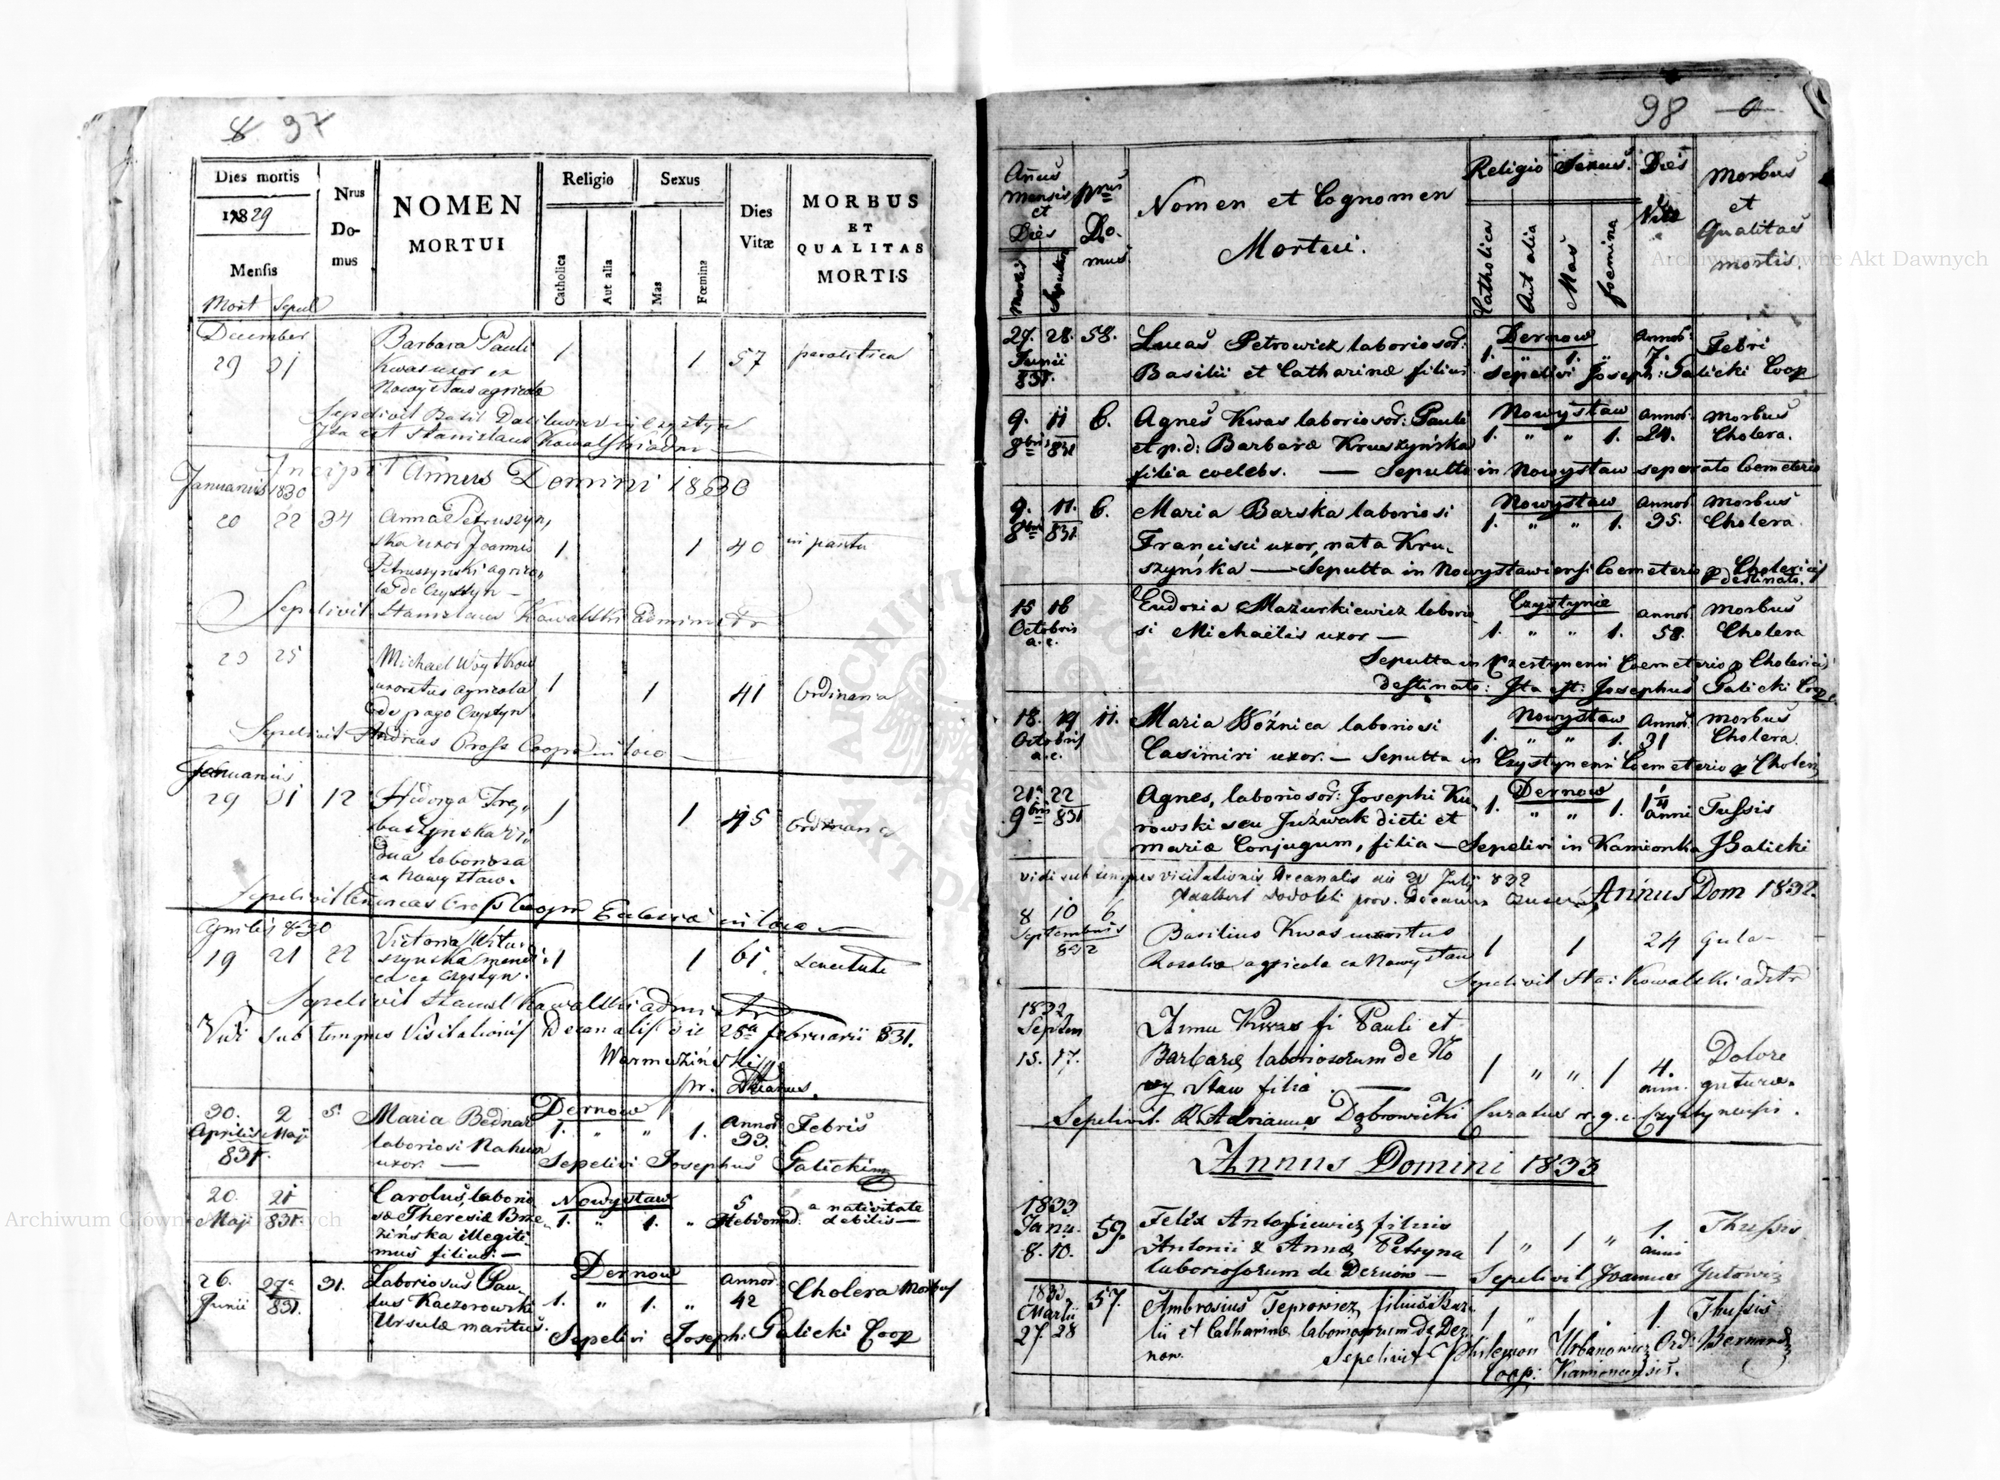 97
Dies mortis
1829
Mensis
Mort Sepul
Nrus
Do-
mus
NOMEN
MORTUI
Religio
Catholica
Aut alia
Sexus
Mas
Fœmina
Dies
Vitæ
MORBUS
ET
QUALITAS
MORTIS
December
29 31
Barbara Pauli
Kwas uxor ex
Nowystaw agricola
1 1 57
Sepelivit Basil
Ita est Stanislaus Kowalski
Incipit Annus Domini 1830
Januarius 1830
20 22 34
Anna Petruszyn,
ska uxor Joannis
Petruszynski agrico,
la de Czystyn
1 1 40
in partu
Sepelivit Stanislaus Kowalski Administr
23 25
Michael
uxoratus agricola
de pago Czystyn
1 1 41
Ordinaria
Sepelivit Andreas Gross Coopr in loco
Januarius
29 31 12
Hedviga
dua laboriosa
ex Nowystaw.
1 1 45
Ordinaria
Sepelivit Andreas Gross Coopr in loco
Aprilis 830
19 21 22
Victoria
ex Czystyn.
1 1 61
Senectute
Sepelivit Stanisl Kowalski admi
Vidi sub tempus Visitationis Decanalis die 25ª februarii 831.
pr. Decanus.
30. 2 5.
Aprilis Maji
831.
Maria Bednar
laboriosi Nahum
uxor. —
Dernow
1. " " 1.
Annor.
33.
Febris
Sepelivi Josephus Galicki
20. 21
Maji 831.
Carolus, laborio
sæ Theresiæ Brze
zińska illegiti
mus filius. —
Nowystaw
1. " 1. "
5
Hebdomad:
a nativitate
debilis —
26. 27ª 31.
Junii 831.
Laboriosus Pau-
lus Kaczorowski
Ursulæ maritus.
Dernow
1. " 1. "
Annor.
42
Cholera Morbus
Sepelivi Joseph: Galicki Coop
98
Añus
Mensis
et
Dies
Mortis
Sepultur
Nrus
Do-
mus.
Nomen et Cognomen
Mortui.
Religio
Catholica
Aut alia
Sexus.
Mas
Foemina
Dies
Vitæ
Morbus
et
Qualitas
mortis.
27. 28. 58.
Junii
831.
Lucas Petrowicz laboriosor:
Basilii et Catharinæ filius
Dernow
1. " 1. "
Annor.
7.
Febri
Sepelivi Joseph: Galicki Coop
9. 11 6.
8bris 831
Agnes Kwas laboriosor: Pauli
et p.d: Barbaræ Kruszyńska
filia coelebs. — Sepulta in Nowystaw seperato Coemeterio
Nowystaw
1. " " 1.
Annor.
24.
Morbus
Cholera.
9. 11. 6.
8bris 831.
Maria Barska laboriosi
Francisci uxor, nata Kru-
szyńska — Sepulta in Nowystawiensi Coemeterio p Cholericis
destinato.
Nowystaw
1. " " 1.
Annor.
35.
Morbus
Cholera.
15 16
Octobris
a.c.
Eudoxia Mazurkiewicz laborio
si Michaëlis uxor —
Czystynie
1. " " 1.
Annor.
58.
Morbus
Cholera
Sepulta in Czestynensi Coemeterio p Cholericis
destinato: Ita est: Josephus Galicki Coop
18. 19 11.
Octobris
a.c.
Maria Woźnica laboriosi
Casimiri uxor. — Sepulta in Czystynensi Coemeterio p Choleri
Nowystaw
1. " " 1.
Annor.
31
Morbus
Cholera
21ª 22
9bris 831
Agnes, laboriosor: Josephi Ku-
rowski seu Juzwak dicti et
Mariæ Conjugum, filia — Sepelivi in Kamionka JGalicki
Dernow
1. " " 1.
1 1/4
anni
Tussis
Vidi sub tempus visitationis Decanalis die 20 Julij 832
Annus Dom 1832.
8 10 6
Septembris
832
Basilius Kwas uxoratus
Rosalia agricola ex Nowystaw
1 1 24
Gula
Sepelivit Sta: Kowalski adstr
1832
Septem
15. 17.
Anna Kwas fi Pauli et
Barbaræ laboriosorum de No
wy Staw filia. —
1 " " 1
4.
ann.
Dolore
guturæ.
Sepelivit R Adrianus Dąbrowicki Curatus r.g.c. Czystynensis.
Annus Domini 1833
1833
Janu.
8. 10. 59.
Felix Antosiewicz filius
Antonii & Annæ Petryna
laboriosorum de Dernow —
1 " 1 "
1.
anni
Thussis
Sepelivit Joannes Gutowicz
1833.
Martii
27. 28 57.
Ambrosius Teprowicz, filius Basi-
lii et Catharinæ laboriosorum de Der-
now. Sepelivit Philemon Urbanowicz Ord: Bernard
Coop: Kamionensis.
1 " 1.
Thussis
Archiwum Główne Akt Dawnych
Archiwum Główne Akt Dawnych